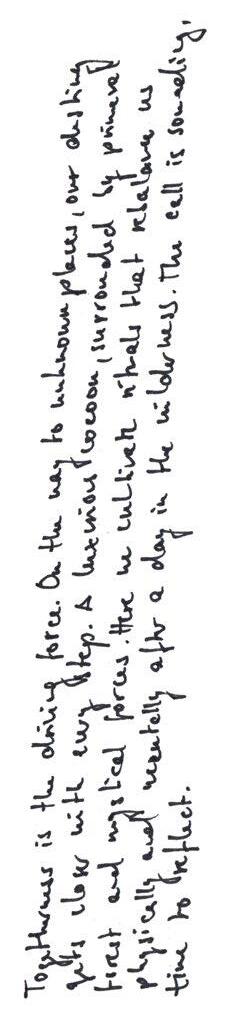 Togetherness is the driving force. On the way to unknown places, our destiny
gets closer with every step. A luxurious cocoon, surrounded by primeval
forest and mystical forces. Here we cultivate rituals that rebalance us
physically and mentally after a day in the wilderness. The call is sounding,
time to reflect.